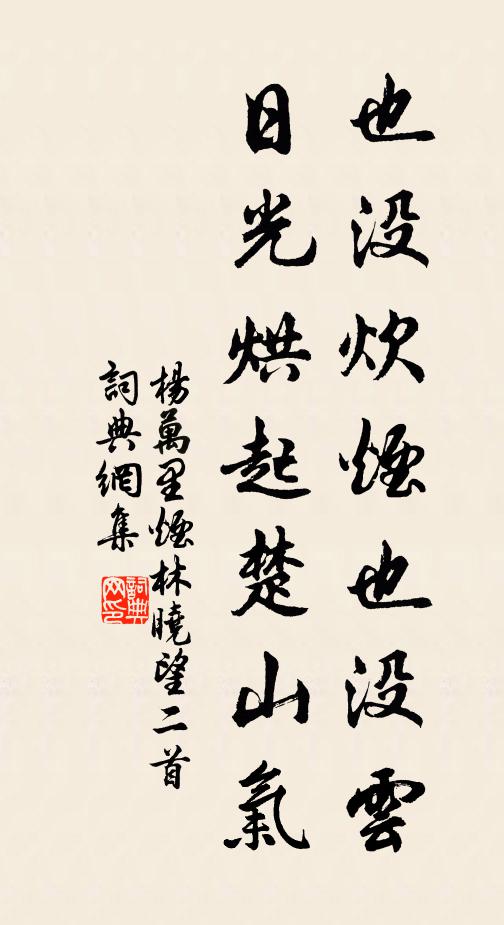 也没炊煙也没雲
日光烘起楚山氣
楊萬里煙林曉望二首
詞典網集
詞典
网印